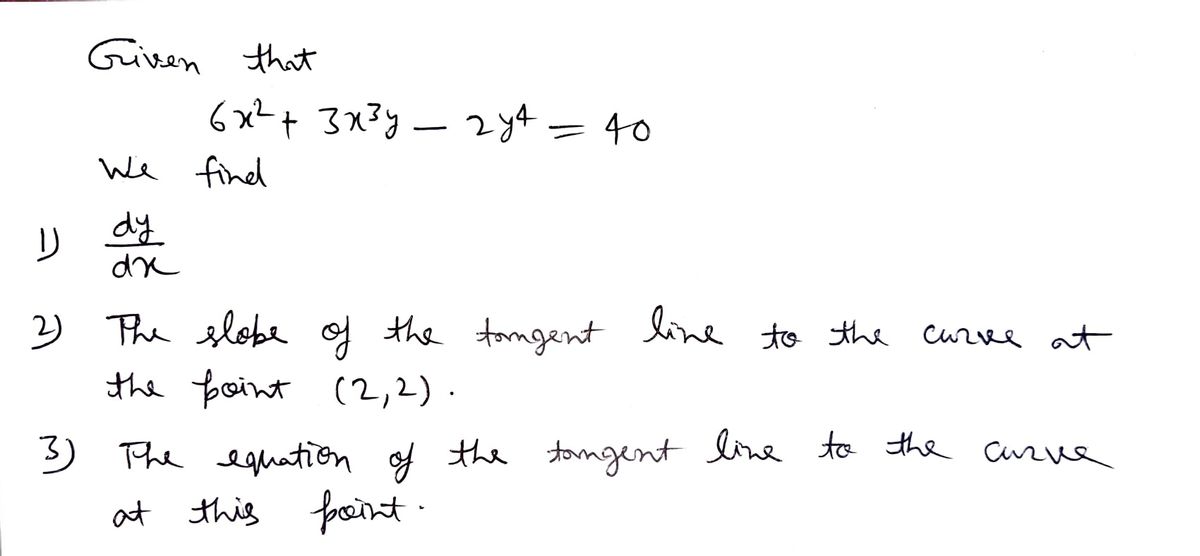 Given that
6x² + 3x³y – 2y⁴ = 40
We find
1) dy/dx
2) The slope of the tangent line to the curve at
the point (2,2).
3) The equation of the tangent line to the curve
at this point.